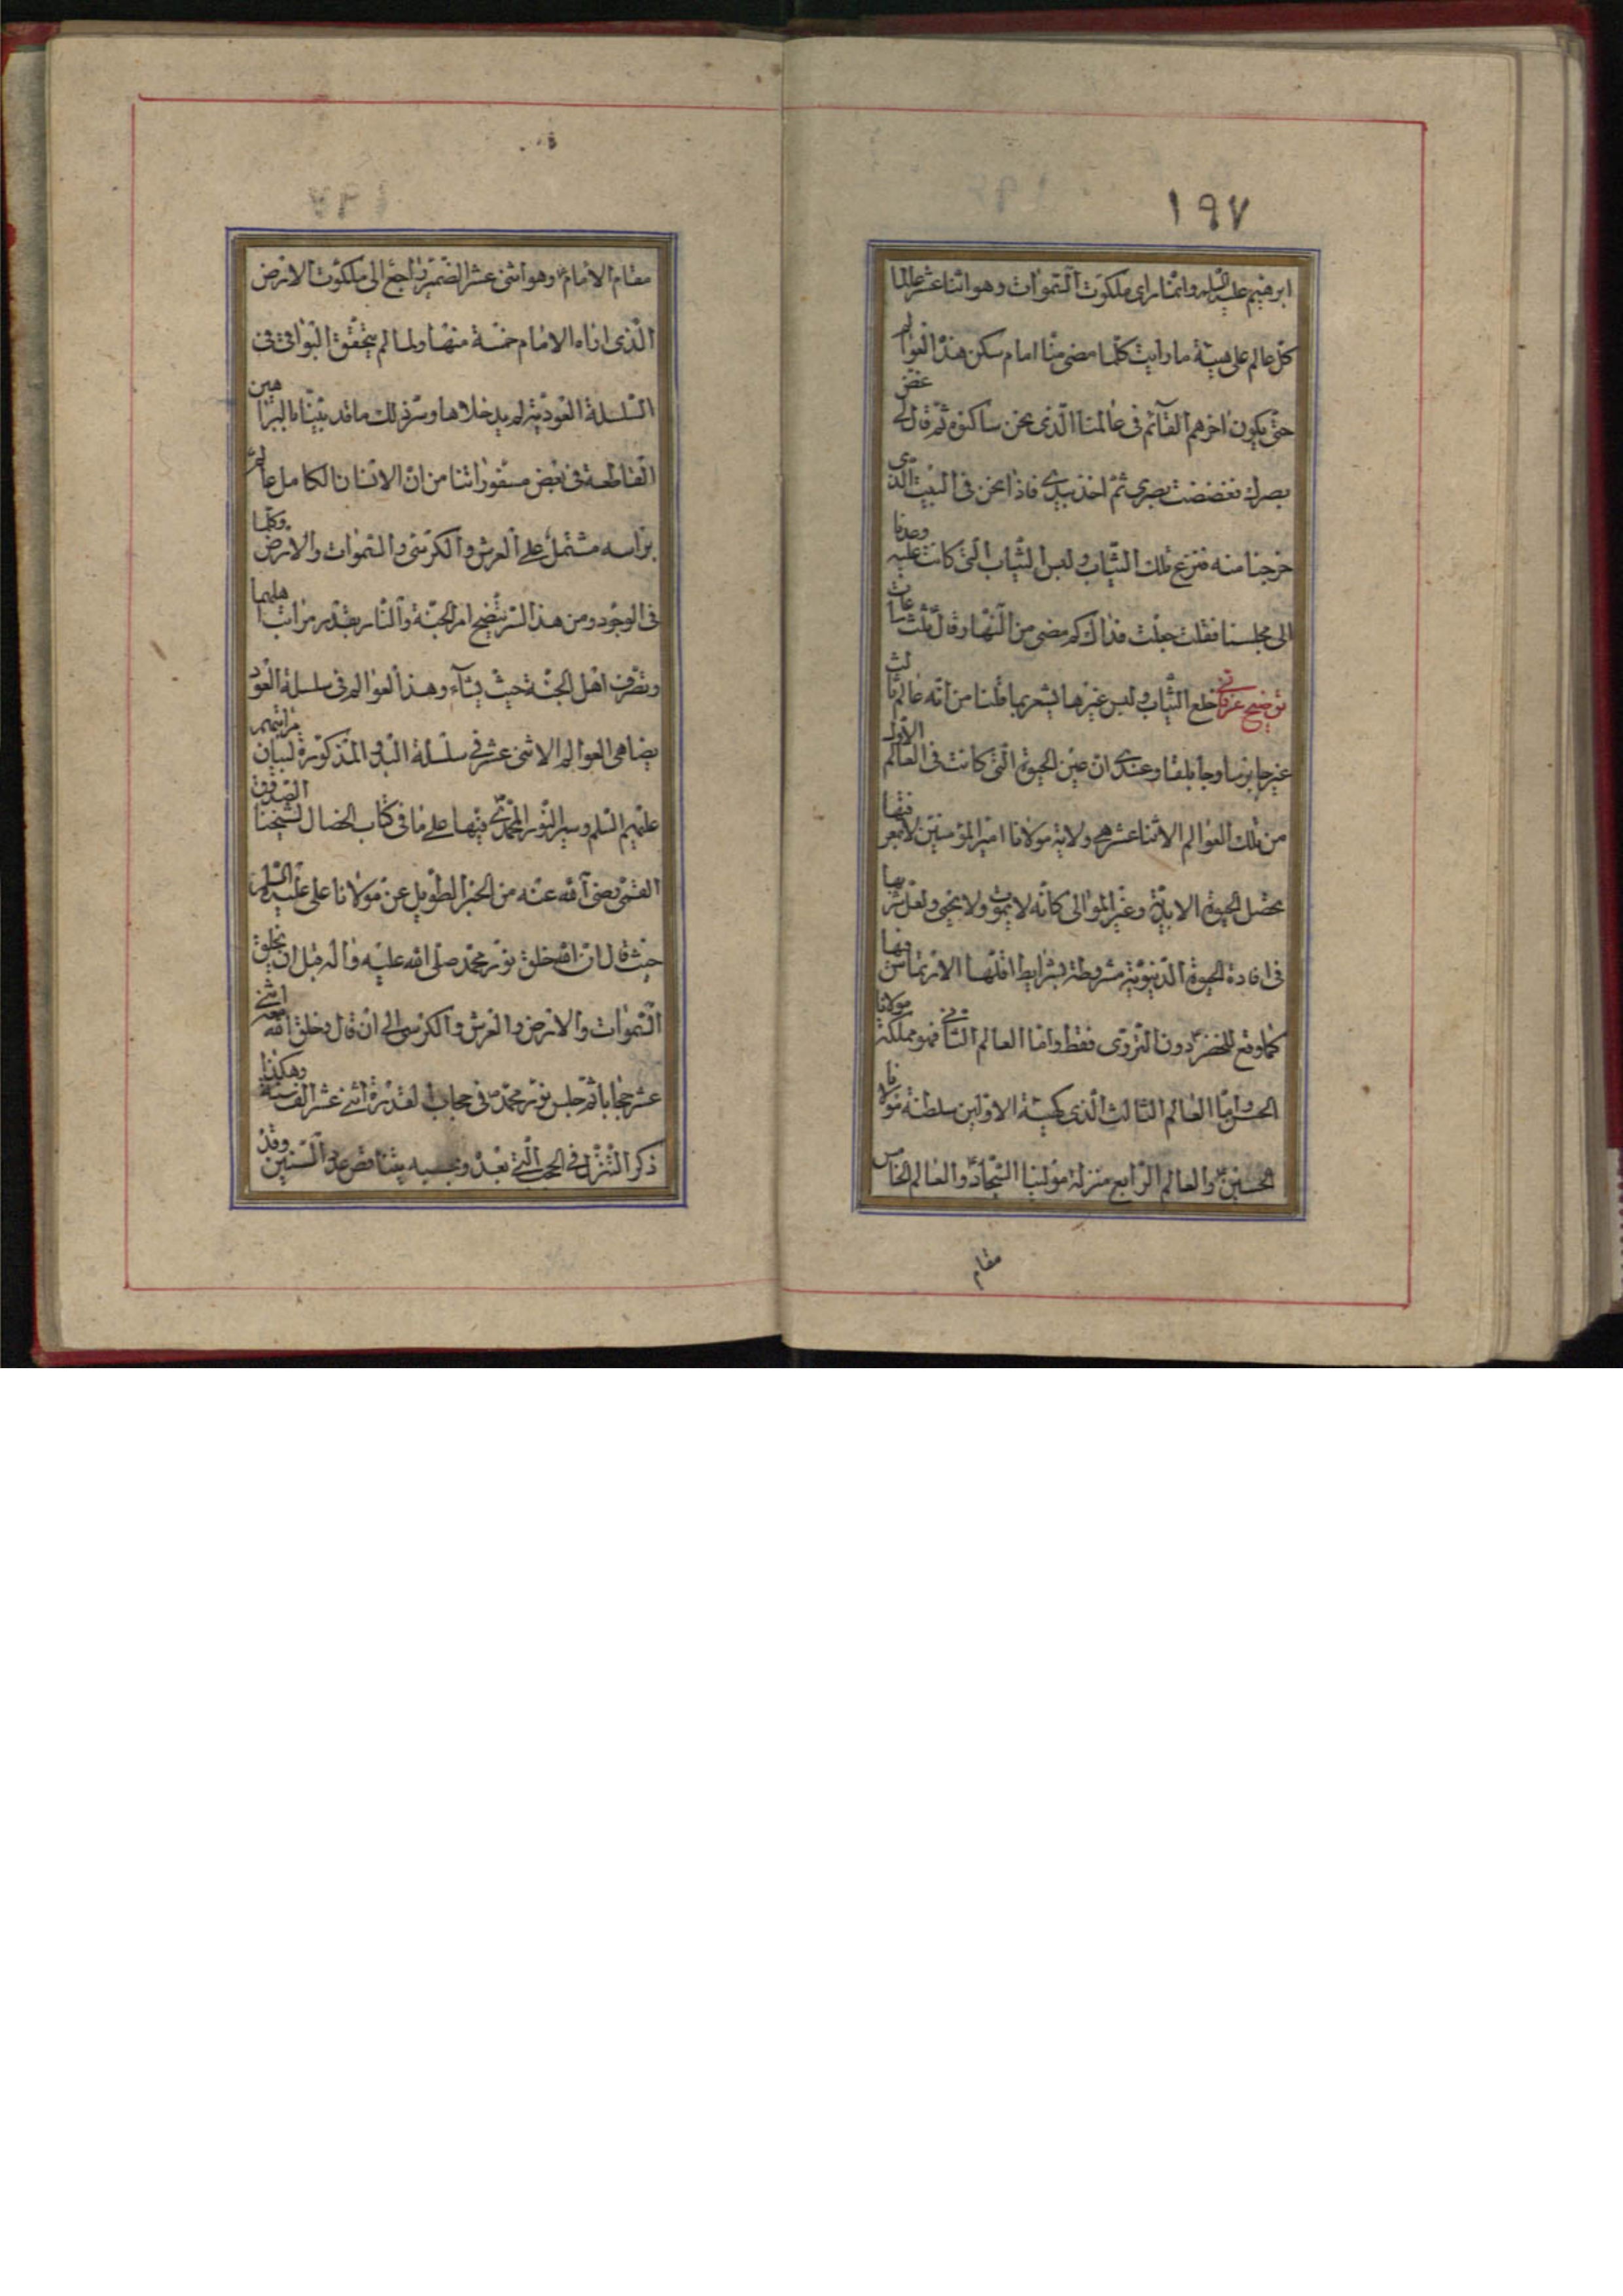 ١٩٧
ابرهيم عليه السلم وانما راى ملكوت السموات وهو اثنا عشر عالما
كل عالم على هيئة ما رايت كلما مضى منا امام سكن هذه العوالم
حتى يكون اخرهم القآئم فى عالمنا الذى نحن ساكنوه ثم قال لى غض
بصرك فغضضت بصرى ثم اخذ بيدى فاذا نحن فى البيت الذى
خرجنا منه فنزع تلك الثياب ولبس الثياب التى كانت عليه وعدنا
الى مجلسنا فقلت جعلت فداك كم مضى من النهار قال ثلث ساعات
توضيح عرفانى خلع الثياب ولبس غيرها يشعر بما قلنا من انه عالم ثالث
غير جابرسا وجابلقا وعندى ان عين الحيوة التى كانت فى العالم الاول
من تلك العوالم الاثنا عشر هى ولاية مولانا امير المؤمنين لا
يحصل الحيوة الابدية وغير الموالى كانه لا يموت ولا يحيى ولعل شربها
فى افادة الحيوة الدنيوية مشروطة بشرايط اقلها الارتماس فيها
كما وقع للخضر دون التروى فقط واما العالم الثانى فهو مملكة مولانا
الحسن واما العالم الثالث الذى كهيئة الاولين سلطنة مولانا
الحسين والعالم الرابع منزلة مولينا السجاد والعالم الخامس
مقام
مقام الامام وهو اثنى عشر الضمير راجع الى ملكوت الارض
الذى اراه الامام خمسة منها ولما لم يتحقق البواقى فى
السلسلة العودية لم يدخلاها وسر ذلك ما قد بينا بالبراهين
القاطعة فى بعض مسفوراتنا من ان الانسان الكامل عالم
براسه مشتمل على العرش والكرسى والسموات والارض وكلما
فى الوجود ومن هذا السر يتضح امر الجنة والنار بقدر مراتب اهليهما
وتصرف اهل الجنة حيث يشآء وهذه العوالم فى سلسلة العود
يضاهى العوالم الاثنى عشر فى سلسلة البدو المذكورة لبيان مراتبهم
عليهم السلم وسير النور المحمدى فيها على ما فى كتاب الخصال لشيخنا الصدوق
القمى رضى الله عنه من الخبر الطويل عن مولانا على عليه السلم
حيث قال ان الله خلق نور محمد صلى الله عليه واله قبل ان يخلق
السموات والارض والعرش والكرسى الى ان قال وخلق الله معه اثنى
عشر حجابا ثم حبس نور محمد فى حجاب القدرة اثنى عشر الف سنة وهكذا
ذكر التنزل فى الحجب التى بعده بتناقص عدد السنين وقد